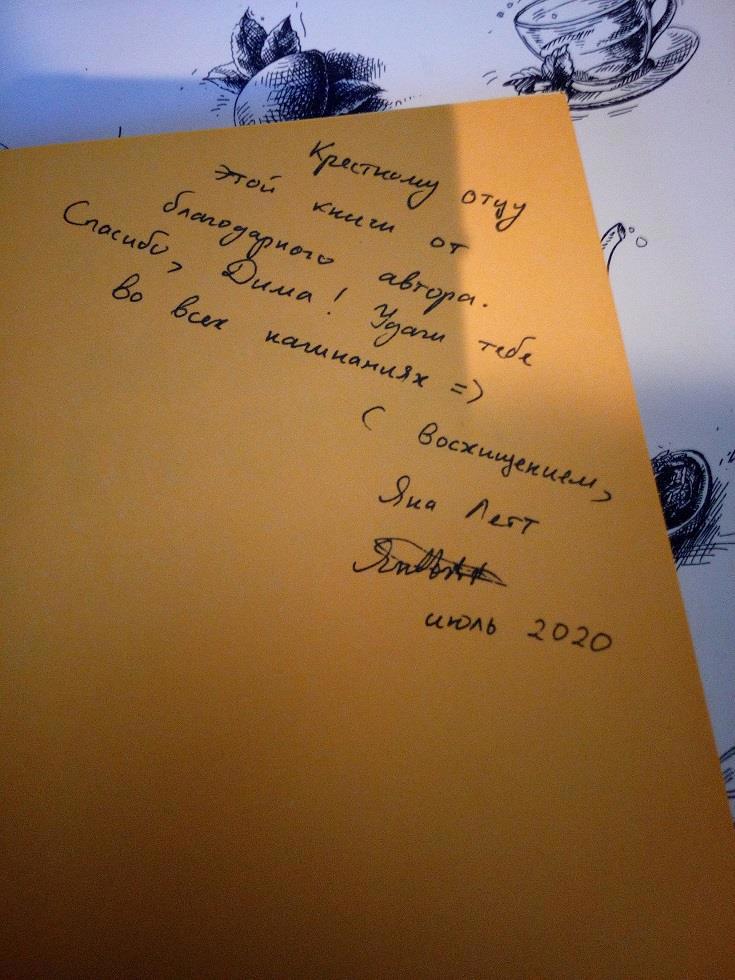 Крестному отцу
этой книги от
благодарного автора.
Спасибо, Дима! Удачи тебе
во всех начинаниях =)
С восхищением,
Яна Летт
июль 2020